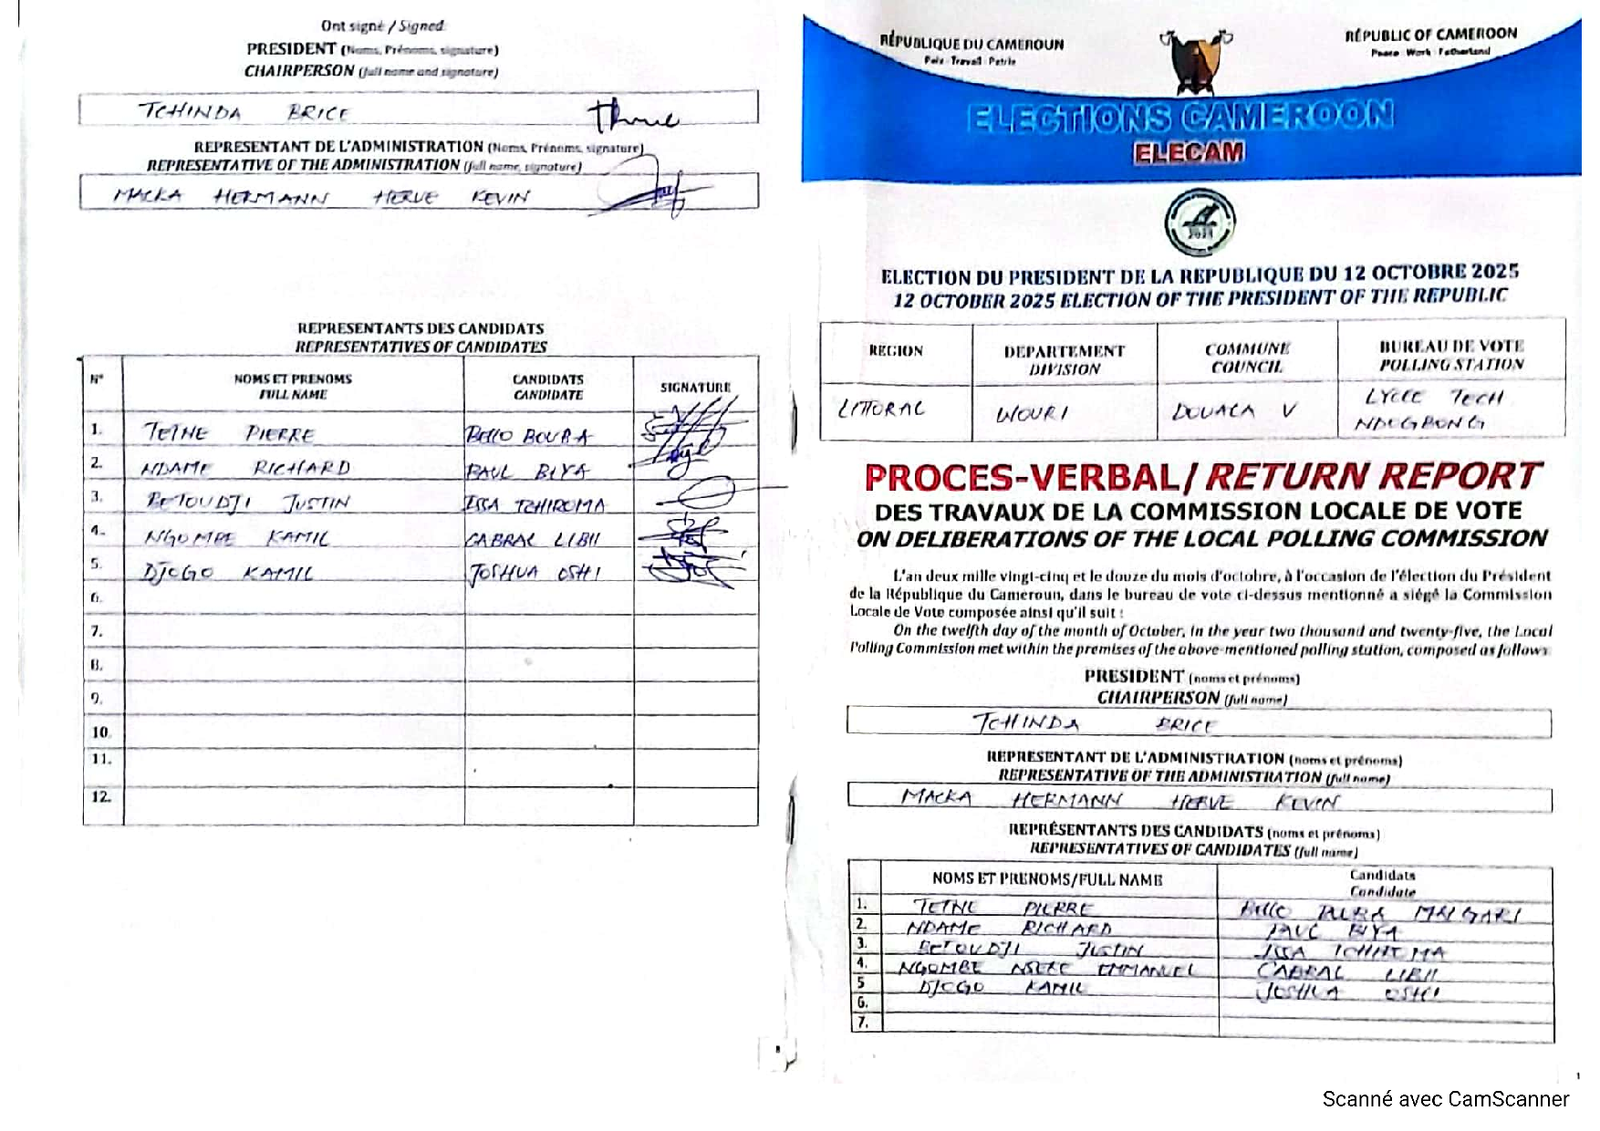 Ont signé / Signed
PRESIDENT (Noms, Prénoms, signature)
CHAIRPERSON (full name and signature)
TCHINDA BRICE
REPRESENTANT DE L'ADMINISTRATION (Noms, Prénoms, signature)
REPRESENTATIVE OF THE ADMINISTRATION (full name, signature)
MACKA HERMANN HERVE KEVIN
REPRESENTANTS DES CANDIDATS
REPRESENTATIVES OF CANDIDATES
N° NOMS ET PRENOMS FULL NAME CANDIDATS CANDIDATE SIGNATURE
1. TETNE PIERRE Bello BOUBA
2. NDAME RICHARD PAUL BIYA
3. BETOUDJI JUSTIN ISSA TCHIROMA
4. NGOMBE KAMIL CABRAL LIBII
5. DJOGO KAMIL JOSHUA OSHI
6.
7.
8.
9.
10.
11.
12.
RÉPUBLIQUE DU CAMEROUN
Paix - Travail - Patrie
RÉPUBLIC OF CAMEROON
Peace - Work - Fatherland
ELECTIONS CAMEROON
ELECAM
ELECTION DU PRESIDENT DE LA REPUBLIQUE DU 12 OCTOBRE 2025
12 OCTOBER 2025 ELECTION OF THE PRESIDENT OF THE REPUBLIC
REGION DEPARTEMENT DIVISION COMMUNE COUNCIL BUREAU DE VOTE POLLING STATION
LITTORAL WOURI DOUALA V LYCEE TECH NDOGBONG
PROCES-VERBAL/ RETURN REPORT
DES TRAVAUX DE LA COMMISSION LOCALE DE VOTE
ON DELIBERATIONS OF THE LOCAL POLLING COMMISSION
L'an deux mille vingt-cinq et le douze du mois d'octobre, à l'occasion de l'élection du Président
de la République du Cameroun, dans le bureau de vote ci-dessus mentionné a siégé la Commission
Locale de Vote composée ainsi qu'il suit :
On the twelfth day of the month of October, in the year two thousand and twenty-five, the Local
Polling Commission met within the premises of the above-mentioned polling station, composed as follows
PRESIDENT (noms et prénoms)
CHAIRPERSON (full name)
TCHINDA BRICE
REPRESENTANT DE L'ADMINISTRATION (noms et prénoms)
REPRESENTATIVE OF THE ADMINISTRATION (full name)
MACKA HERMANN HERVE KEVIN
REPRÉSENTANTS DES CANDIDATS (noms et prénoms)
REPRESENTATIVES OF CANDIDATES (full name)
NOMS ET PRENOMS/FULL NAME Candidats Candidate
1. TETNE PIERRE Bello BOUBA MAIGARI
2. NDAME RICHARD PAUL BIYA
3. BETOUDJI JUSTIN ISSA TCHIROMA
4. NGOMBE EMMANUEL CABRAL LIBII
5 DJOGO KAMIL JOSHUA OSHI
6.
7.
1
Scanné avec CamScanner